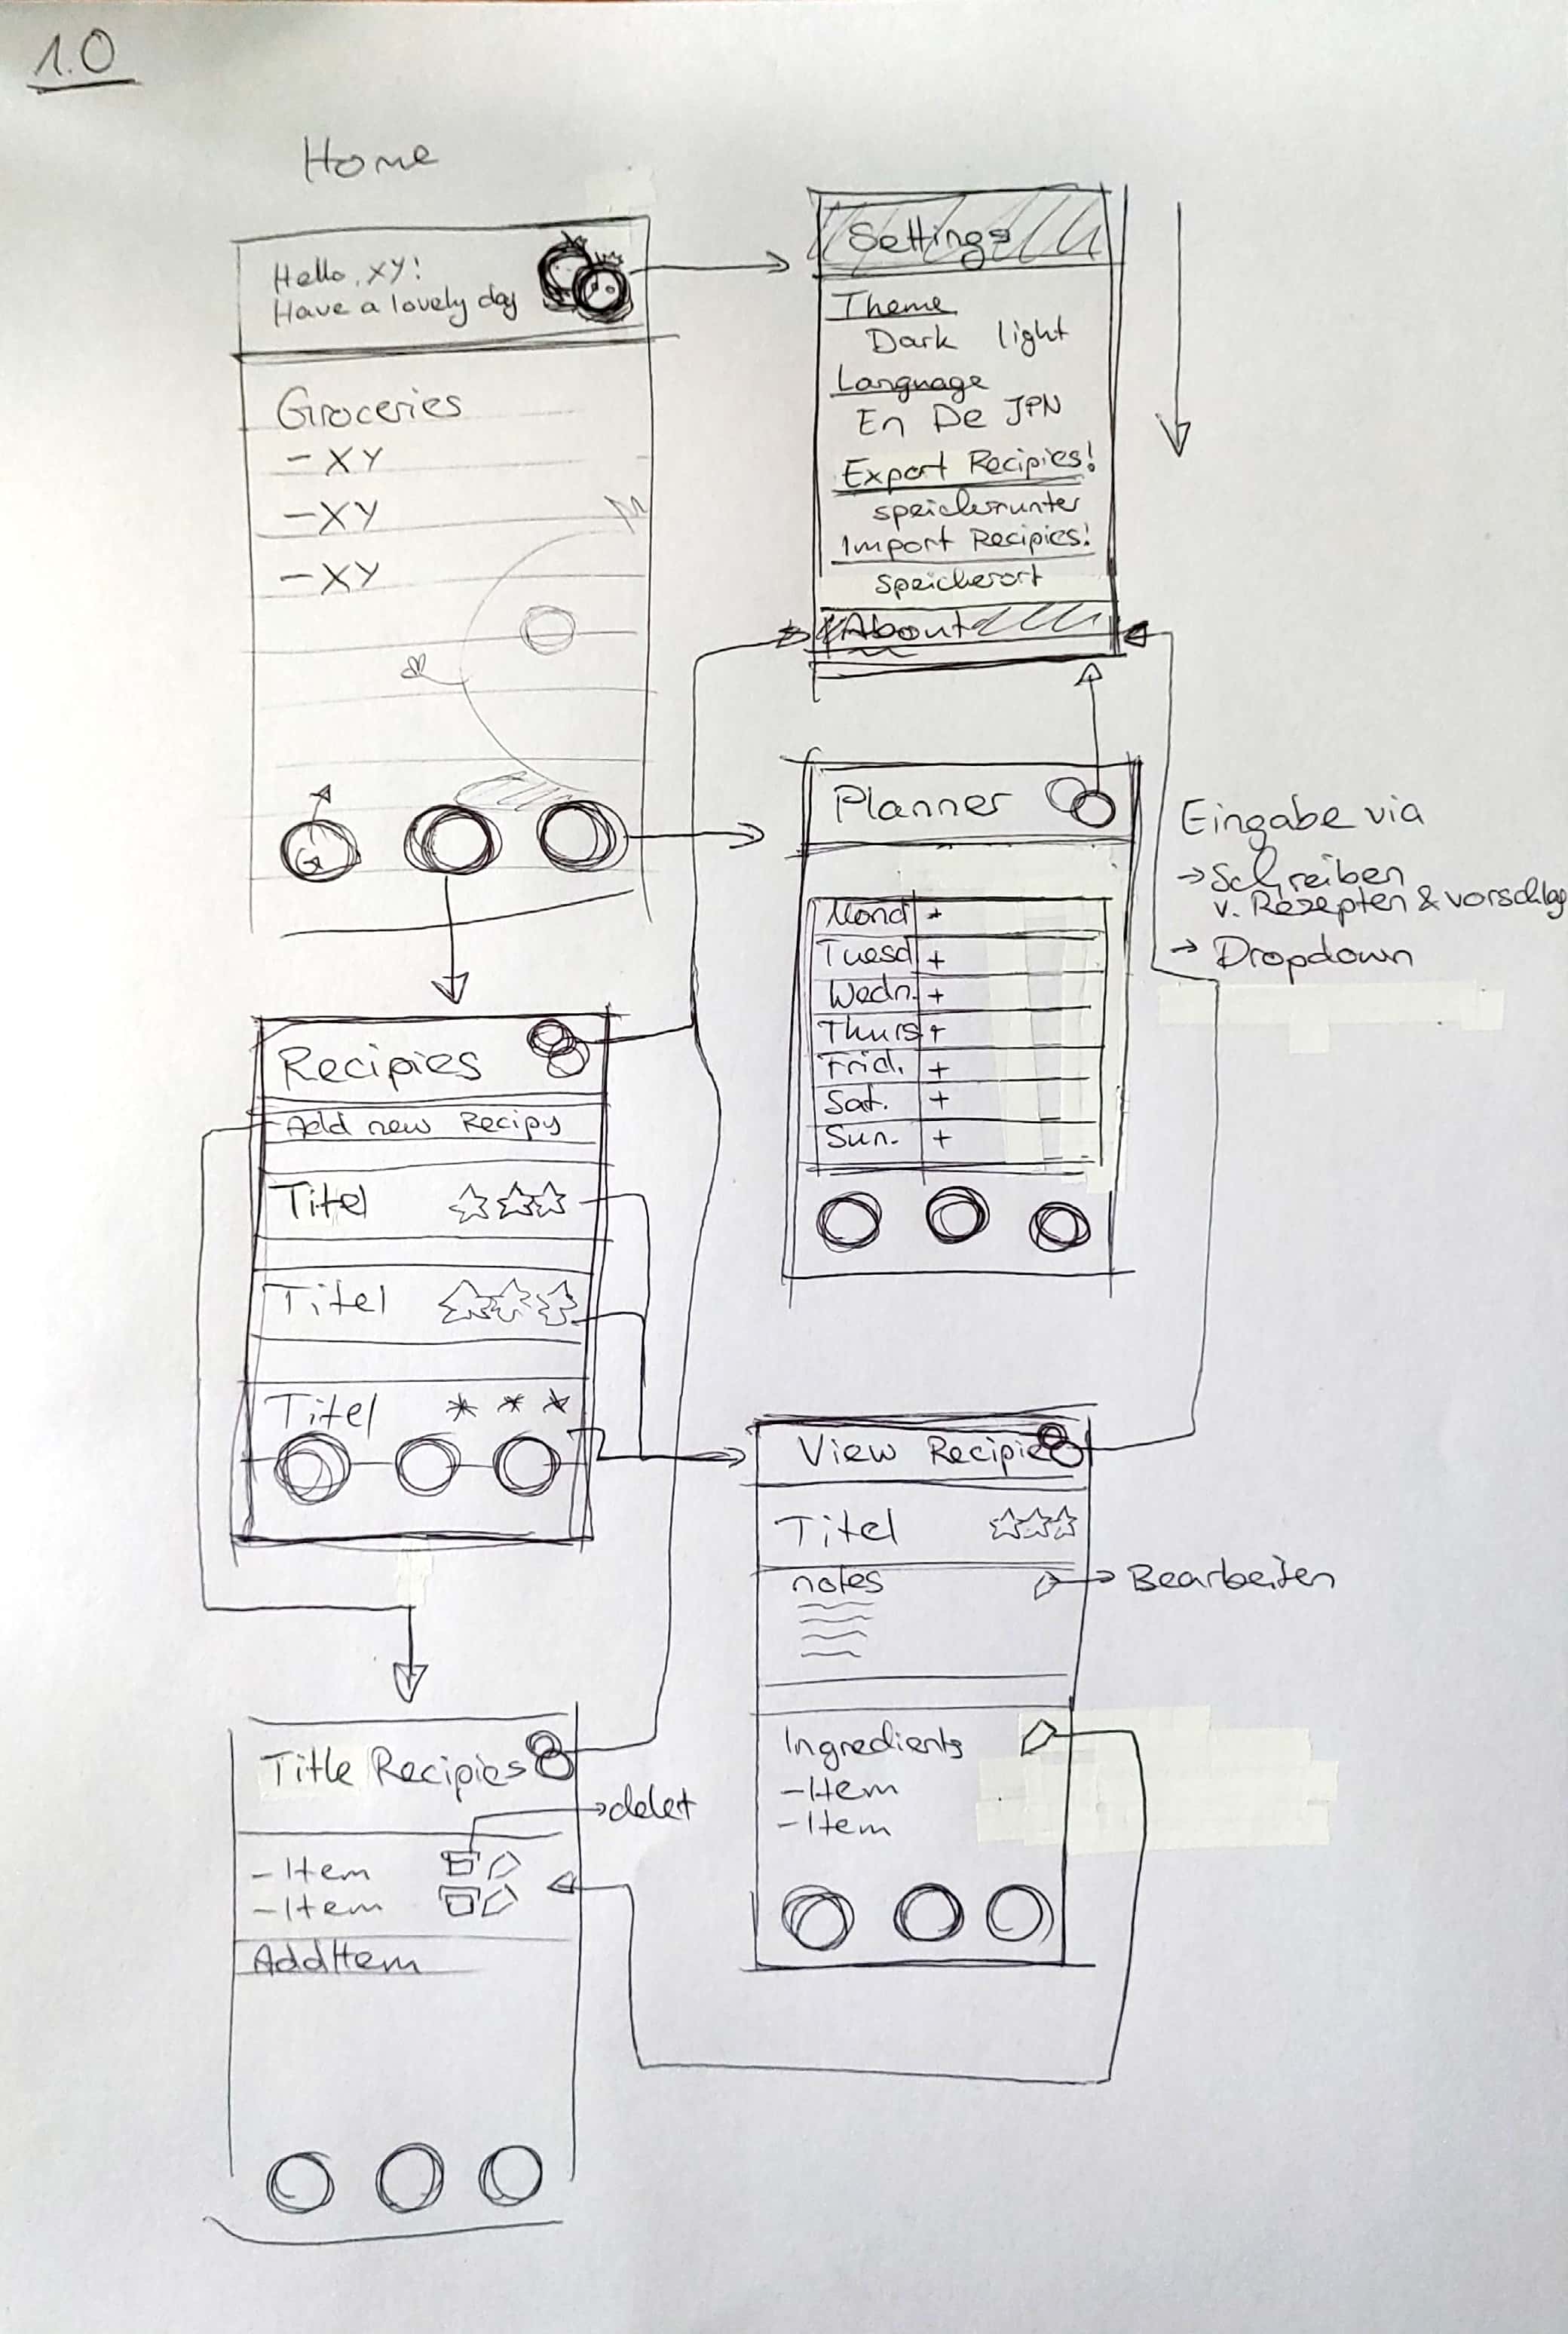 1.0
Home
Hello, XY!
Have a lovely day
Groceries
- XY
- XY
- XY
G
Settings
Theme
Dark light
Language
En De JPN
Export Recipies!
speicherunter
Import Recipies!
Speicherort
About
Planner
Mond +
Tuesd +
Wedn. +
Thurs +
Frid. +
Sat. +
Sun. +
Eingabe via
→ Schreiben
v. Rezepten & vorschlag
→ Dropdown
Recipies
Add new Recipy
Titel
Titel
Titel
View Recipie
Titel
notes
Bearbeiten
Ingredients
- Item
- Item
Title Recipies
delet
- Item
- Item
Add Item